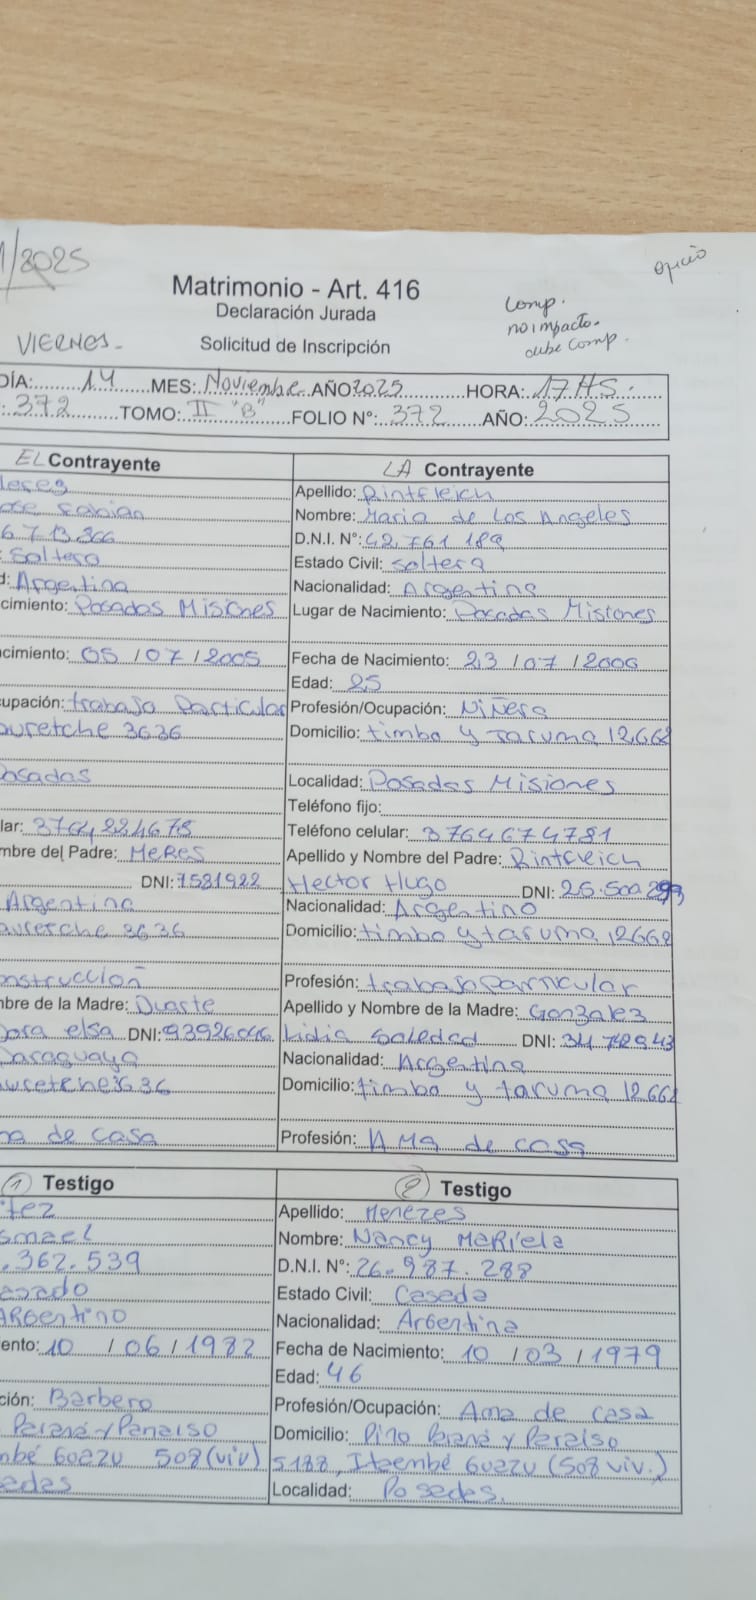 1/2025
Matrimonio - Art. 416
Declaración Jurada
Solicitud de Inscripción
VIERNES-
oficio
Comp.
no impacto.
debe comp.
DÍA: 14 MES: Noviembre AÑO 2025 HORA: 17 HS.
372 TOMO: II "B" FOLIO Nº: 372 AÑO: 2025
EL Contrayente
ose Fabian
6713366
Soltero
d: Argentina
cimiento: Posadas Misiones
cimiento: 05 / 07 / 2005
upación: trabajo Particular
auretche 3636
osadas
lar: 3764224675
mbre del Padre: Meres
DNI: 7581922
Argentino
auretche 3636
onstrucción
mbre de la Madre: Duarte
elsa DNI: 93926046
Paraguaya
auretche 3636
ma de casa
LA Contrayente
Apellido: Rintfleich
Nombre: Maria de Los Angeles
D.N.I. Nº: 42.761 189
Estado Civil: soltera
Nacionalidad: Argentina
Lugar de Nacimiento: Posadas Misiones
Fecha de Nacimiento: 23 / 07 / 2000
Edad: 25
Profesión/Ocupación: Niñera
Domicilio: timbo y taruma 12668
Localidad: Posadas Misiones
Teléfono fijo:
Teléfono celular: 3764674781
Apellido y Nombre del Padre: Rintfleich
Hector Hugo DNI: 26.500
Nacionalidad: Argentino
Domicilio: timbo y taruma 12668
Profesión: trabajo particular
Apellido y Nombre de la Madre: Gonzalez
Lidia Soledad DNI: 34 742943
Nacionalidad: Argentina
Domicilio: timbo y taruma 12668
Profesión: AMA de casa
1 Testigo
tez
smael
.362.539
asado
ARGentino
iento: 10 / 06 / 1982
ción: Barbero
Paraná y Paraiso
mbé Guazu 508 (viv)
adas
2 Testigo
Apellido: Menezes
Nombre: Nancy Mariela
D.N.I. Nº: 26.987.288
Estado Civil: Casada
Nacionalidad: Argentina
Fecha de Nacimiento: 10 / 03 / 1979
Edad: 46
Profesión/Ocupación: Ama de casa
Domicilio: Pino Paraná y Paraíso
5188, Itaembé Guazu (508 viv.)
Localidad: Posadas.